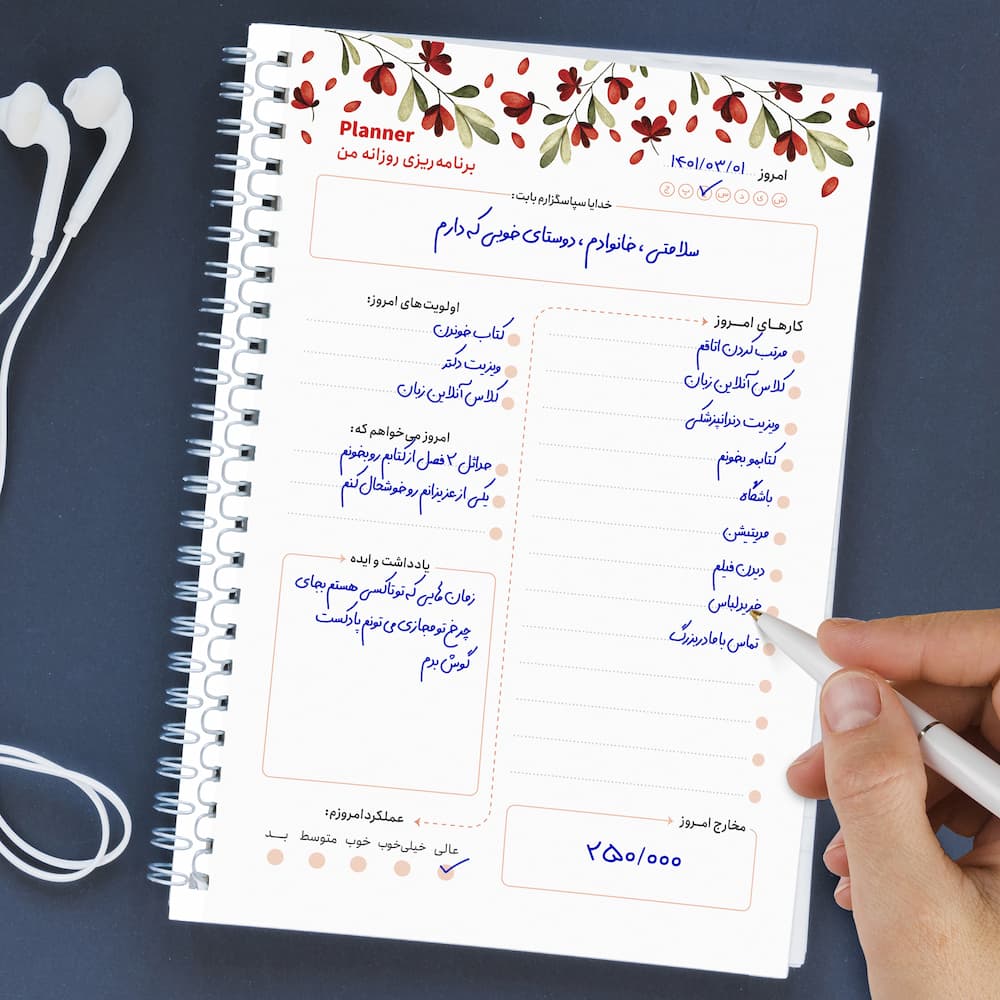 Planner
برنامه ریزی روزانه من
امروز ۱۴۰۱/۰۳/۰۱
ش ی د س چ پ ج
خدایا سپاسگزارم بابت:
سلامتی ، خانوادم ، دوستای خوبی که دارم
کارهـای امـــروز
مرتب کردن اتاقم
کلاس آنلاین زبان
ویزیت دندانپزشکی
کتابمو بخونم
باشگاه
مدیتیشن
دیدن فیلم
خرید لباس
تماس با مادربزرگ
اولویت‌های امروز:
کتاب خوندن
ویزیت دکتر
کلاس آنلاین زبان
امروز می‌خواهم که:
حداقل ۲ فصل از کتابم رو بخونم
یکی از عزیزانم رو خوشحال کنم
یادداشت و ایده
زمان هایی که تو تاکسی هستم بجای
چرخ تو مجازی می تونم پادکست
گوش بدم
عملکرد امروزم:
عالی خیلی‌خوب خوب متوسط بــد
مخارج امـروز
۲۵۰/۰۰۰